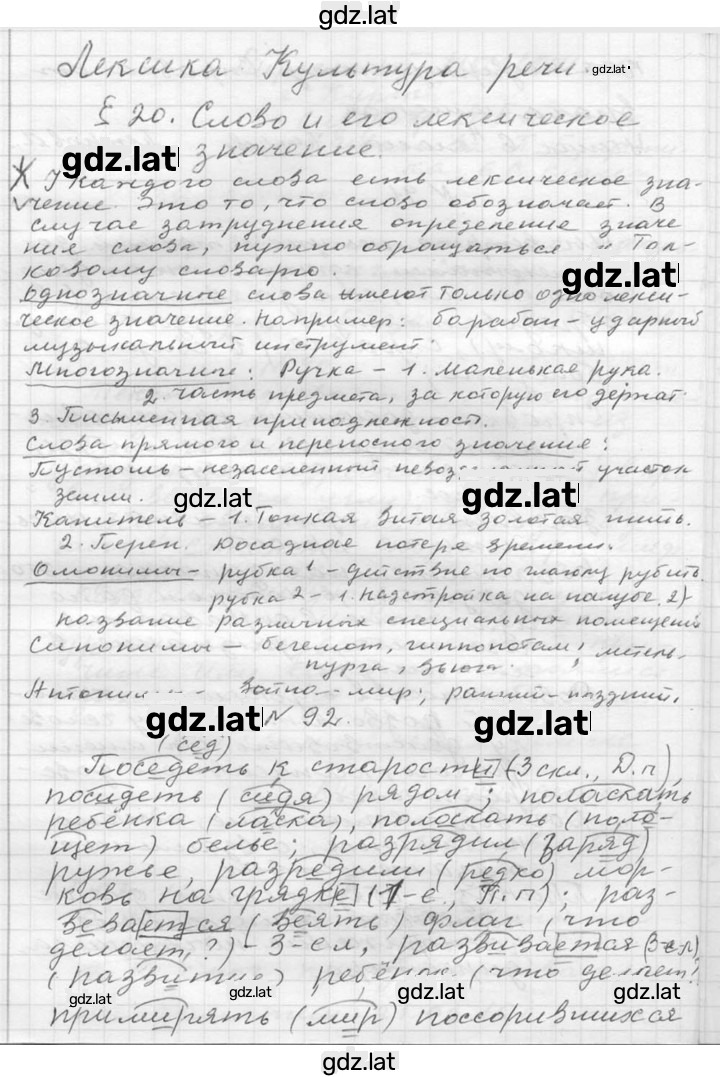 gdz.lat
Лексика Культура речи. gdz.lat
§ 20. Слово и его лексическое
gdz.lat значение.
У каждого слова есть лексическое зна-
чение. Это то, что слово обозначает. В
случае затруднения определение значе
ния слова, нужно обращаться "Тол-
ковому словарю. gdz.lat
Однозначные слова имеют только одно лекси-
ческое значение. Например: барабан – ударный
музыкальный инструмент.
Многозначные: Ручка – 1. маленькая рука.
2. часть предмета, за которую его держат.
3. Письменная принадлежность.
Слова прямого и переносного значение:
Пустошь – незаселенный участок
земли. gdz.lat gdz.lat
Канитель – 1. Тонкая витая золотая нить.
2. Перен. Досадная потеря времени.
Омонимы – рубка 1 – действие по глаголу рубить.
рубка 2 – 1. надстройка на палубе. 2)
название различных специальных помещений
Синонимы – бегемот, гиппопотам; метель,
пурга, вьюга.
война – мир; ранний – поздний.
gdz.lat N 92. gdz.lat
(сед)
Поседеть к старости (3 скл., Д.п),
посидеть (сидя) рядом; поласкать
ребёнка (ласка), полоскать (поло-
щет) бельё; разрядил (заряд)
ружье, разредили (редко) мор-
ковь на грядке (1-е, П.п); раз-
вевается (веять) флаг (что
делает?) – 3-ел, развивается (3-ел)
(развитие) ребёнок (что делает?
gdz.lat gdz.lat gdz.lat gdz.lat
примирять (мир) поссорившихся
gdz.lat